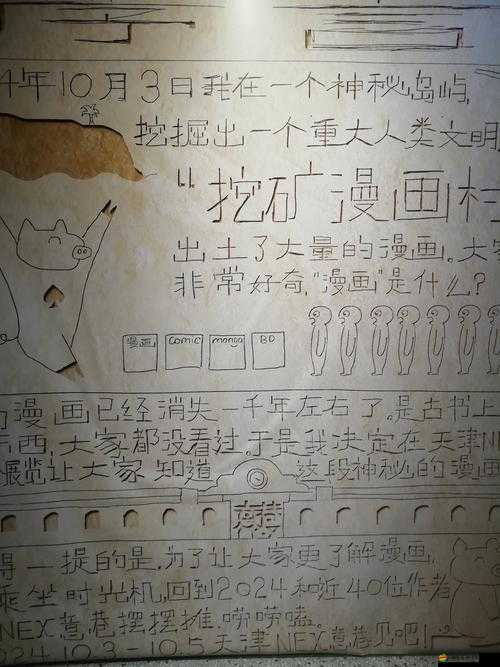 4年10月3日我在一个神秘岛屿,
挖掘出一个重大人类文明
"挖矿漫画村
出土了大量的漫画。大家
非常好奇,"漫画"是什么?
漫画 comic manga BD
漫画已经消失一千年左右了。是古书上
东西,大家都没看过。于是我决定在天津NE
展览让大家知道 这段神秘的漫画
得一提的是,为了让大家更了解漫画,
乘坐时光机,回到2024和近40位作者
NEX意巷摆摆摊,唠唠嗑。
2024.10.3-10.5天津NEX意巷见吧!